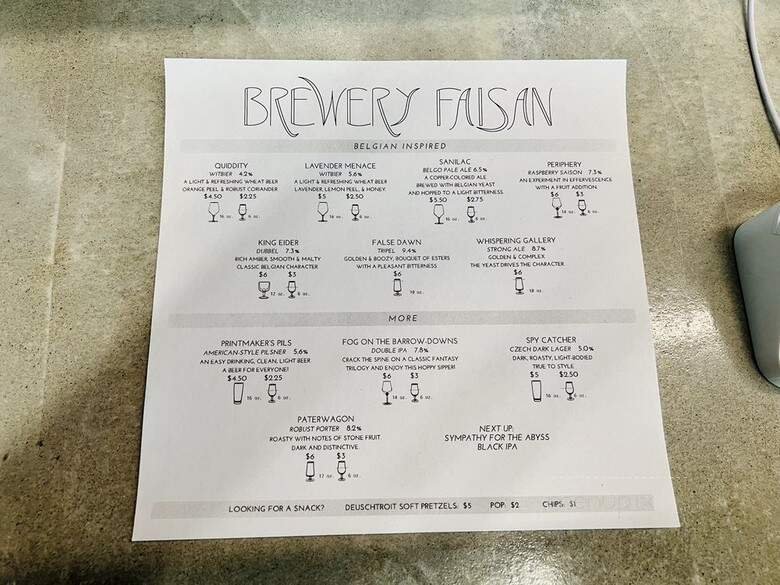 BREWERY FAISAN
BELGIAN INSPIRED
QUIDDITY
WITBIER 4.2%
A LIGHT & REFRESHING WHEAT BEER
ORANGE PEEL & ROBUST CORIANDER
$4.50 $2.25
16 oz. 6 oz.
LAVENDER MENACE
WITBIER 5.6%
A LIGHT & REFRESHING WHEAT BEER
LAVENDER, LEMON PEEL, & HONEY.
$5 $2.50
16 oz. 6 oz.
SANILAC
BELGO PALE ALE 6.5%
A COPPER-COLORED ALE
BREWED WITH BELGIAN YEAST
AND HOPPED TO A LIGHT BITTERNESS.
$5.50 $2.75
16 oz. 6 oz.
PERIPHERY
RASPBERRY SAISON 7.3%
AN EXPERIMENT IN EFFERVESCENCE
WITH A FRUIT ADDITION.
$6 $3
14 oz. 6 oz.
KING EIDER
DUBBEL 7.3%
RICH AMBER, SMOOTH & MALTY
CLASSIC BELGIAN CHARACTER
$6 $3
12 oz. 6 oz.
FALSE DAWN
TRIPEL 9.4%
GOLDEN & BOOZY, BOUQUET OF ESTERS
WITH A PLEASANT BITTERNESS
$6
oz.
WHISPERING GALLERY
STRONG ALE 8.7%
GOLDEN & COMPLEX
THE YEAST DRIVES THE CHARACTER
$6
oz.
MORE
PRINTMAKER'S PILS
AMERICAN-STYLE PILSNER 5.6%
AN EASY DRINKING, CLEAN, LIGHT BEER.
A BEER FOR EVERYONE!
$4.50 $2.25
16 oz. 6 oz.
FOG ON THE BARROW-DOWNS
DOUBLE IPA 7.8%
CRACK THE SPINE ON A CLASSIC FANTASY
TRILOGY AND ENJOY THIS HOPPY SIPPER!
$6 $3
14 oz. 6 oz.
SPY CATCHER
CZECH DARK LAGER 5.0%
DARK, ROASTY, LIGHT-BODIED
TRUE TO STYLE.
$5 $2.50
16 oz. 6 oz.
PATERWAGON
ROBUST PORTER 8.2%
ROASTY WITH NOTES OF STONE FRUIT.
DARK AND DISTINCTIVE.
$6 $3
12 oz. 6 oz.
NEXT UP:
SYMPATHY FOR THE ABYSS
BLACK IPA
LOOKING FOR A SNACK? DEUSCHTROIT SOFT PRETZELS: $5 POP: $2 CHIPS: $1